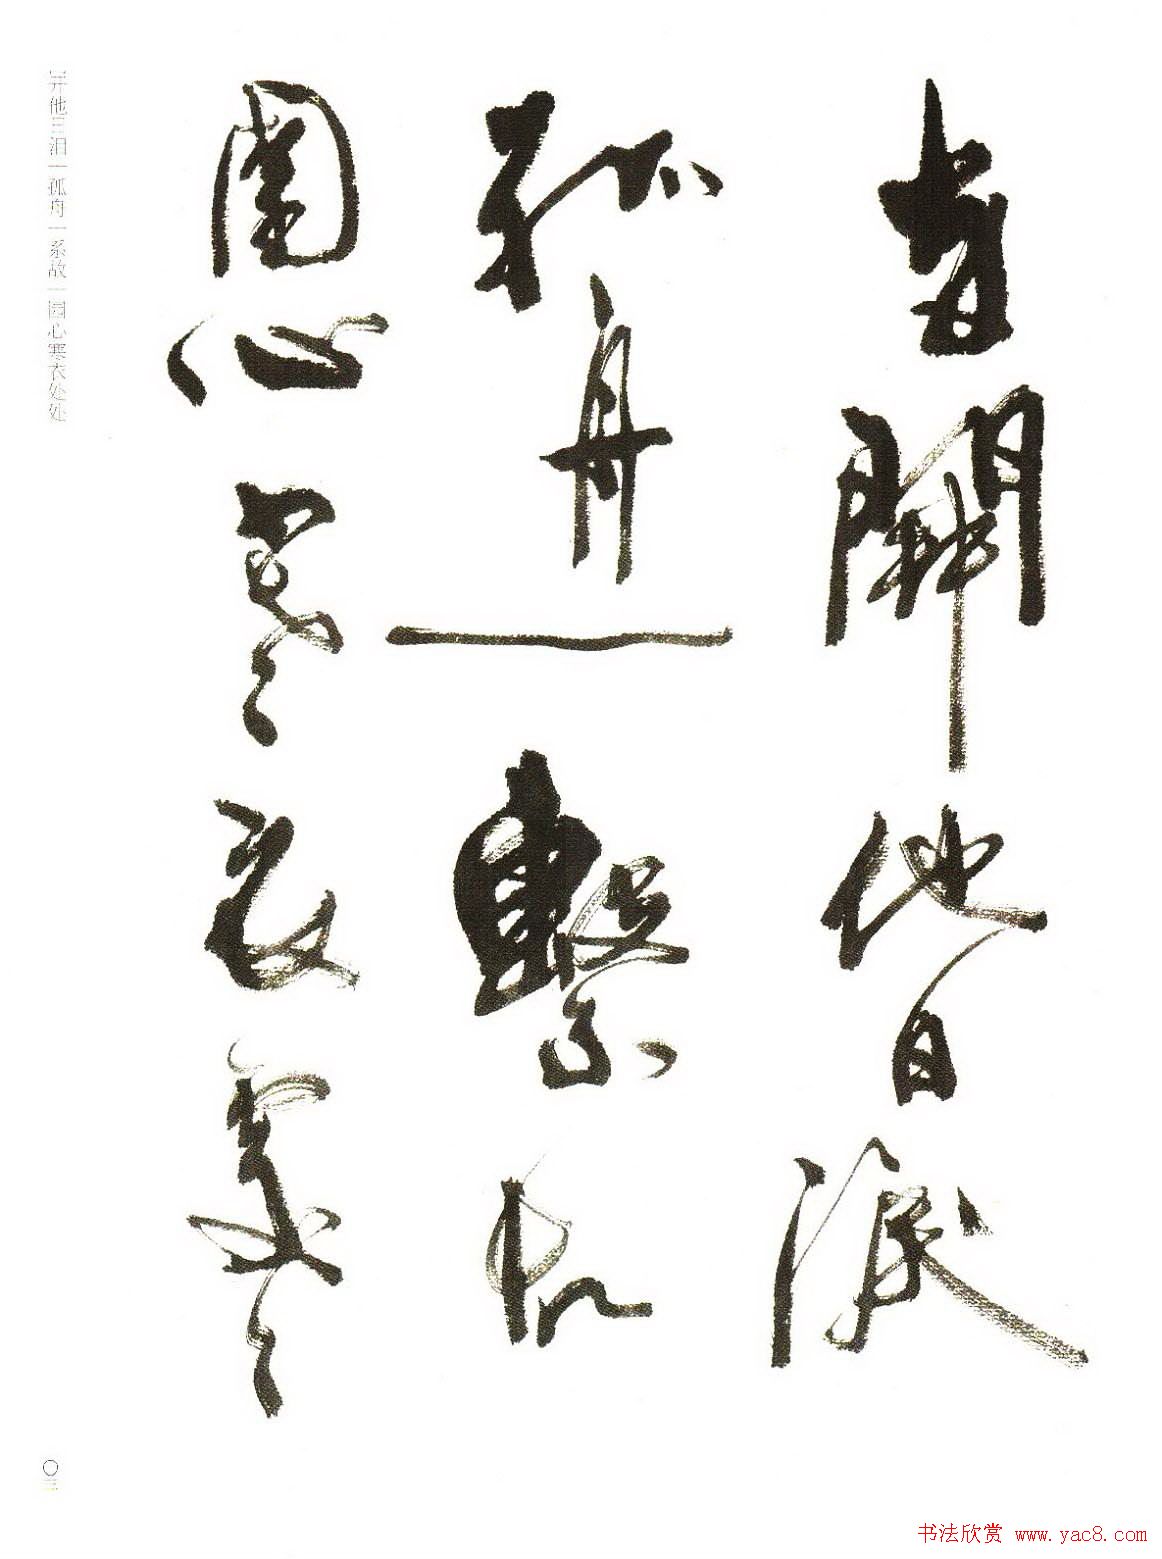 開他日淚
孤舟一繫故
園心寒衣處々
开他日泪｜孤舟一系故｜园心寒衣处处
〇三
书法欣赏 www.yac8.com